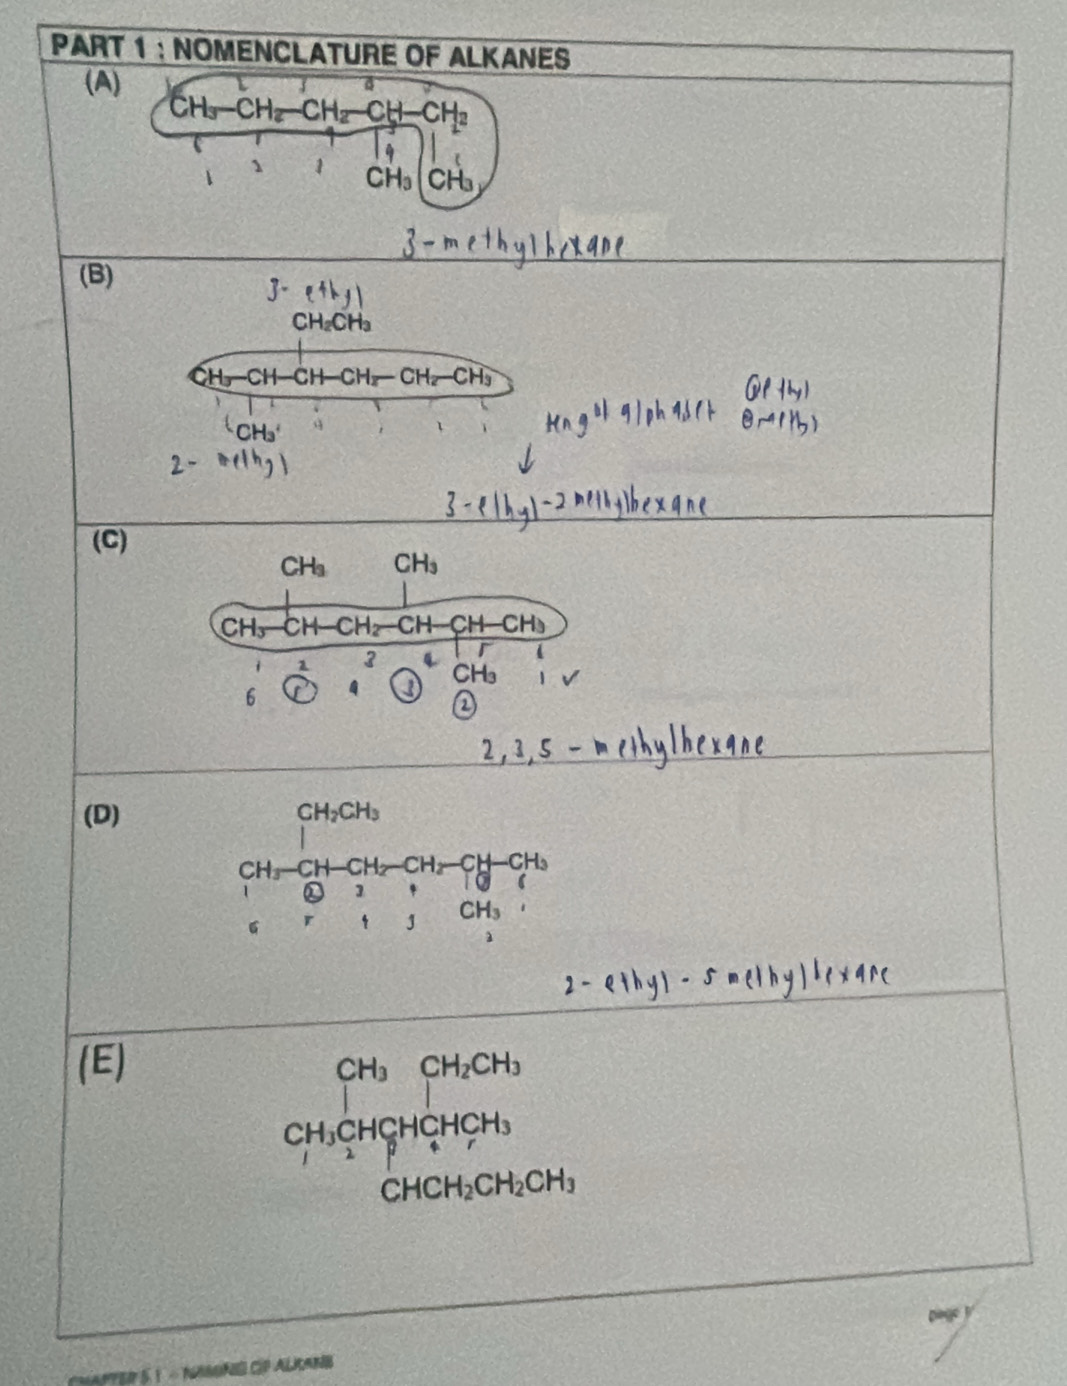 PART 1 : NOMENCLATURE OF ALKANES
(A)
CH₃–CH₂–CH₂–CH–CH₂
1 2 3
CH₃ CH₃
3-methylhexane
(B)
3- ethyl
CH₂CH₃
CH₃–CH–CH–CH₂–CH₂–CH₃
CH₃
2- methyl
ethyl
methyl
↓
3-ethyl-2 methylhexane
(C)
CH₃ CH₃
CH₃–CH–CH₂–CH–CH–CH₃
1 2 3 4 5 6
CH₃
6 5 4 3 1 ✓
2
2,3,5 - methylhexane
(D)
CH₂CH₃
CH₃–CH–CH₂–CH₂–CH–CH₃
1 2 3 4 5 6
CH₃
6 5 4 3 1
2
2- ethyl - 5 methylhexane
(E)
CH₃ CH₂CH₃
CH₃CHCHCHCH₃
1 2 3 4 5
CHCH₂CH₂CH₃
page 1
CHAPTER 5.1 - NAMING OF ALKANE